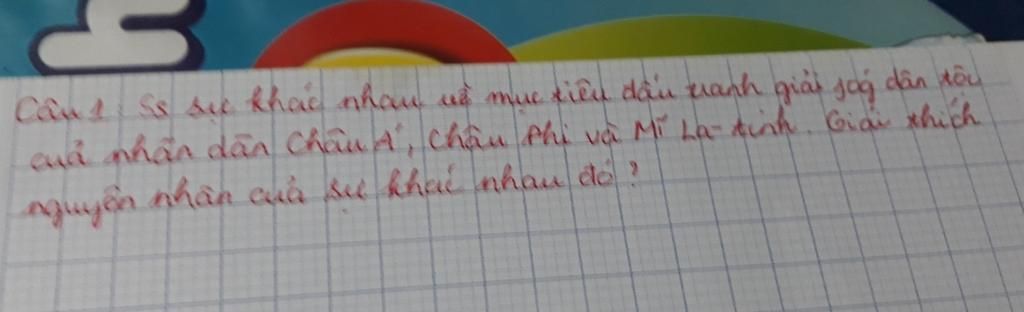 Câu 1: Ss sự khác nhau về mục tiêu đấu tranh giải fóg dân tộc
của nhân dân Châu Á, Châu Phi và Mĩ La-tinh. Giải thích
nguyên nhân của sự khác nhau đó?